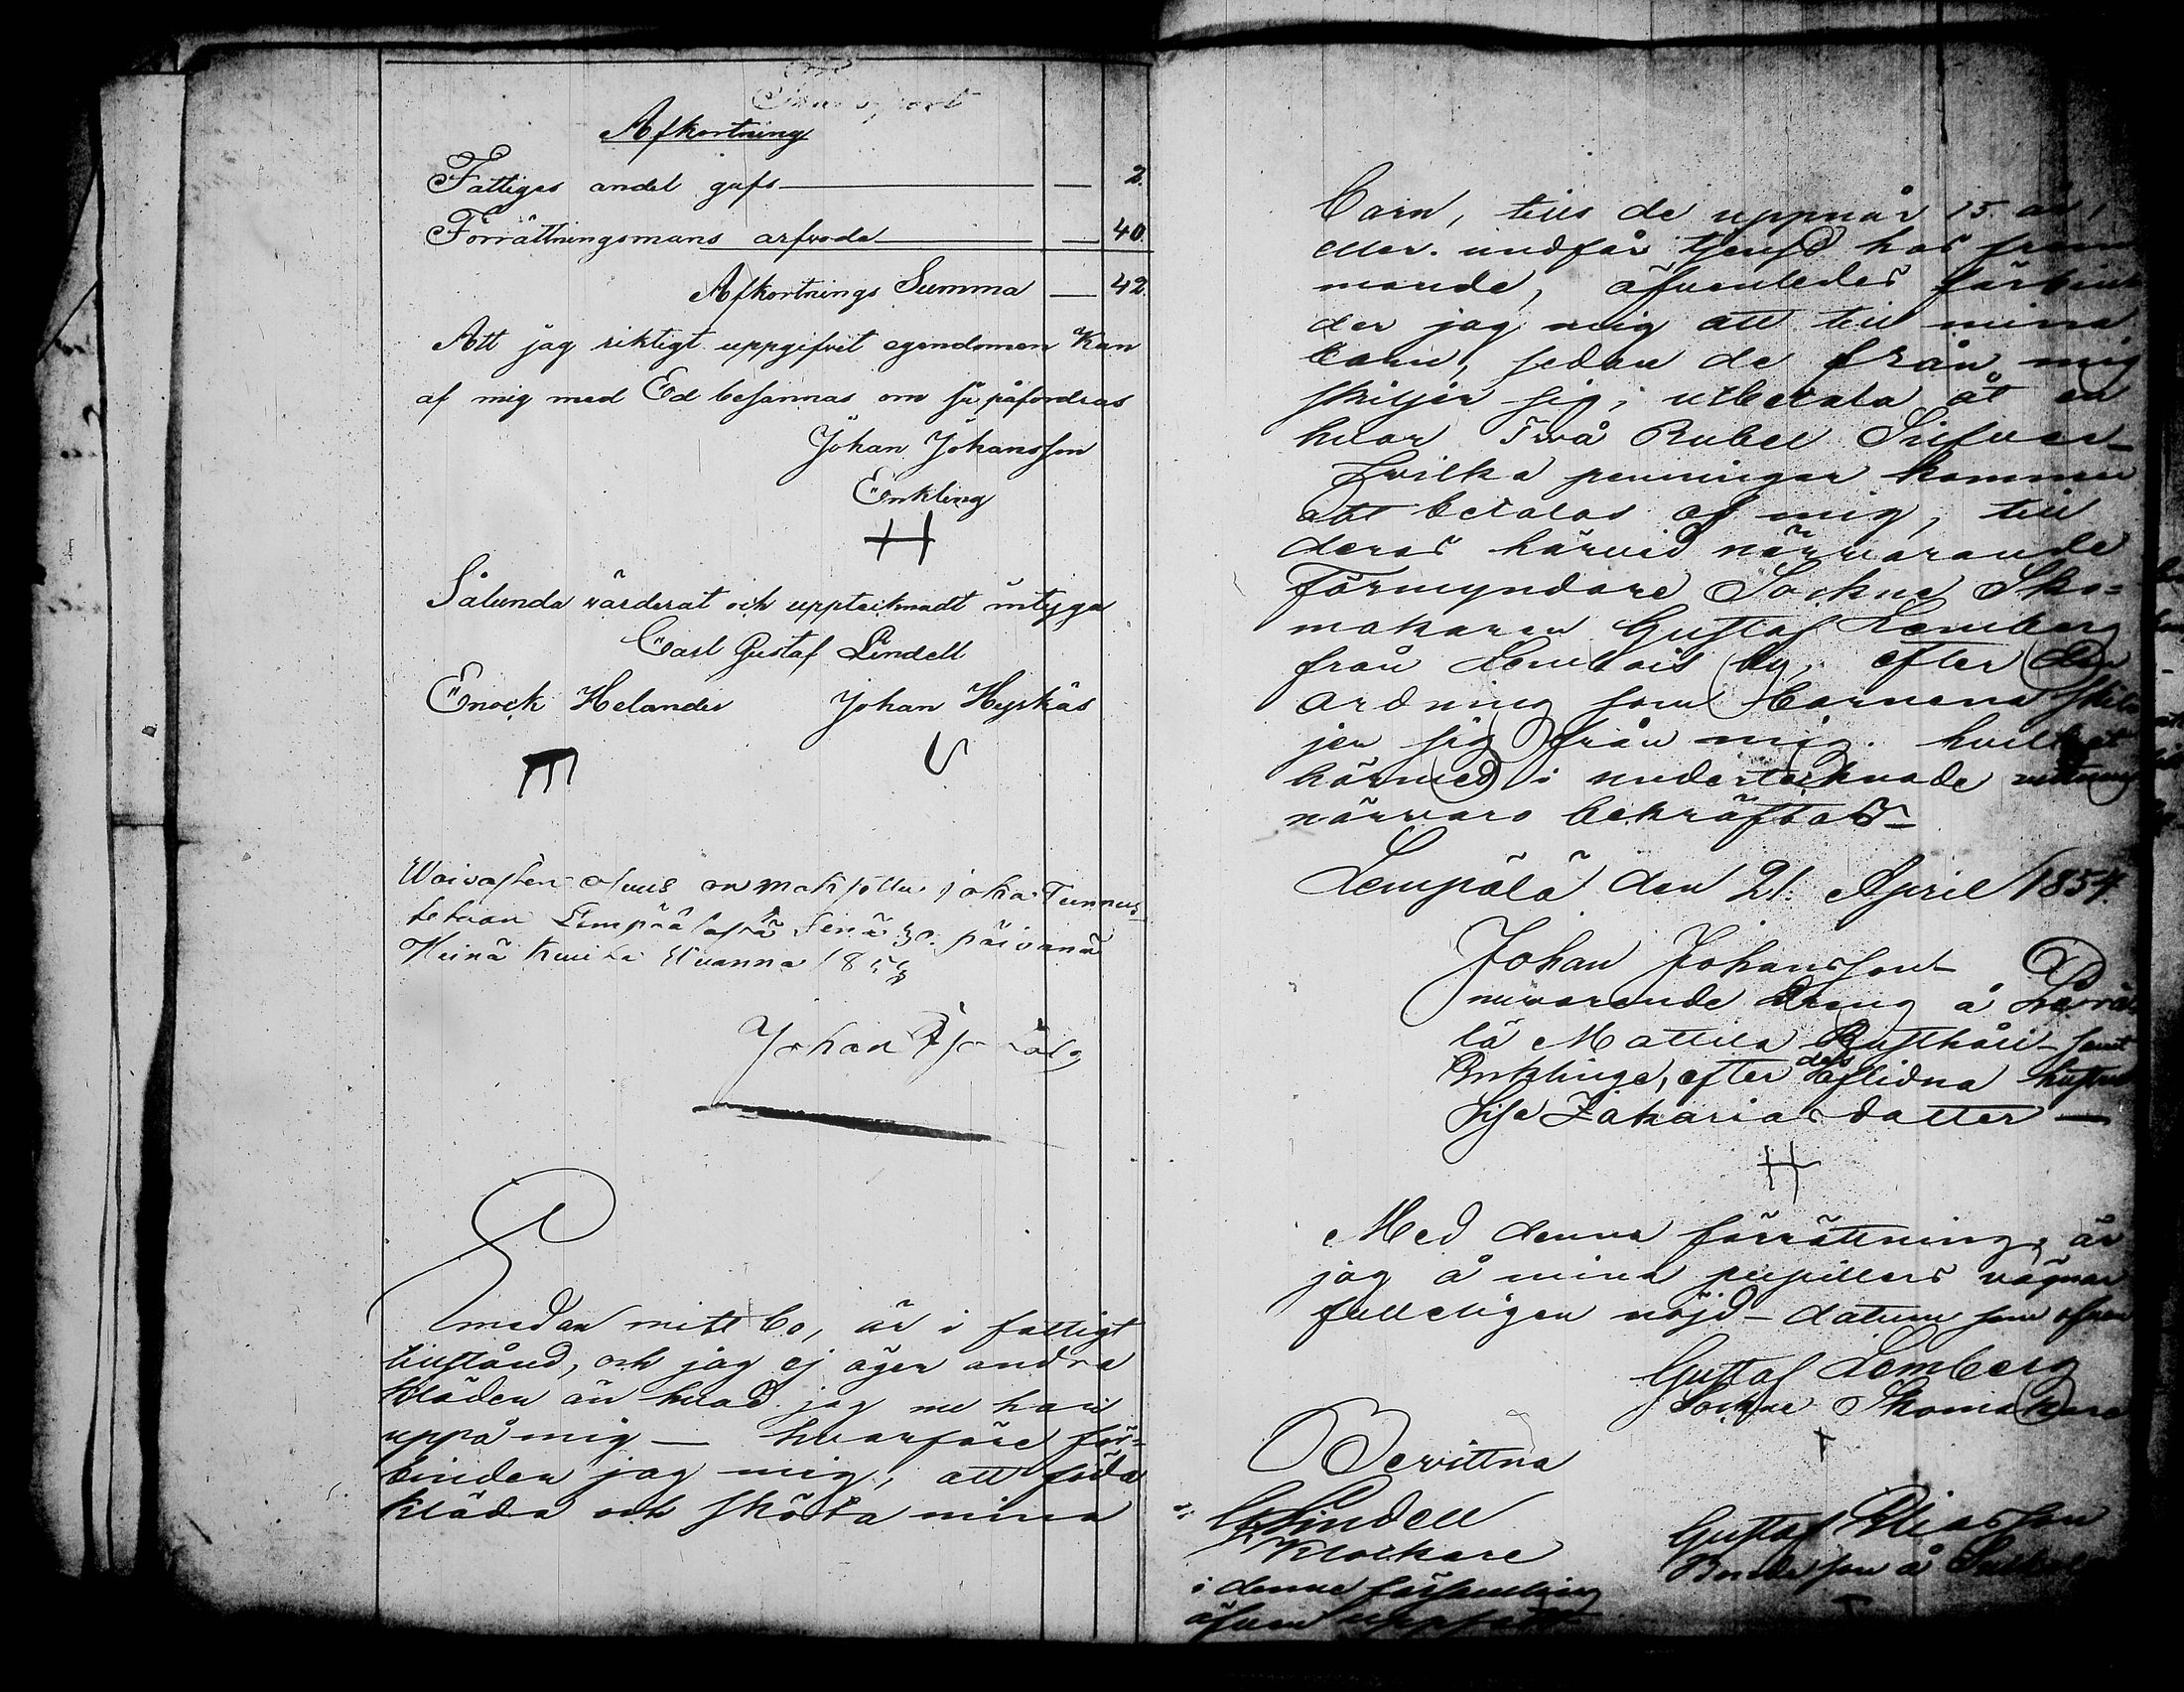 Transport
Afkortning
Fattiges andel gafs — — 2.
Förrättningsmans arfvode — — 40
Afkortnings Summa — 42.
Att jag riktigt uppgifvit egendomen Kan
af mig med Ed besannas om så påfordras
Johan Johansson
Enkling
Sålunda värderat och upptecknadt intyga
Carl Gustaf Lindell
Enock Helander Johan Hyrkäs
Waivasten osuus on maksettu joka Tunnus-
tetaan Lempäälasta senä 30. päivänä
Heinä Kuuta Wuanna 185
Johan
Emedan mitt bo, är i fattigt
tillstånd, och jag ej äger andra
kläden än hvad jag nu har
uppå mig — hvarföre för-
binder jag mig, att föda
kläda och sköta mina
barn, tills de uppnår 15 år,
eller undfår tjenst hos främ
mande, äfvenledes förbin
der jag mig att till mina
barn, sedan de från mig
skiljer sig, utbetala åt en
hvar Två Rubel Silfver_
hvilka penningar kommer
att betalas af mig, till
deras härvid närvarande
Förmyndare Sockne Sko=
makaren Gustaf Lemberg
från Lembois by, efter den
ordning som Barnena skil
jer sig från mig. hvilket
härmed i undertecknade vittnens
närvaro bekräftas_
Lempälä den 21. April 1854.
Johan Johansson
nuvarande dräng å
lä Mattila Rusthåll samt
Enklinge, efter dess Aflidna hustru
Lisa Zakarias dotter —
Med denna förrättning, är
jag å mina pupillers vägnar
fulleligen nöjd — datum som ofvan
Gustaf Lemberg
Sockne Skomakare
Bevittna
CG Lindell
Klockare
i denne församling
äfven uppsatt
Gustaf Eliasson
Bonde son å